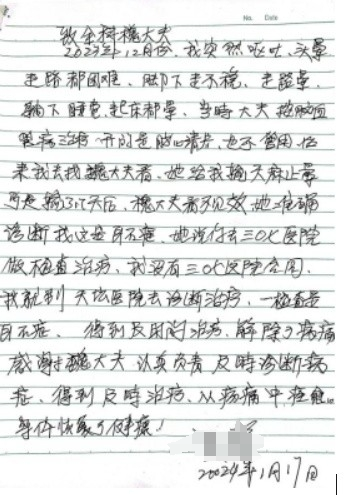 致全科魏大夫
2023年12月份,我突然呕吐、头晕
走路都困难、脚下走不稳、走路晕,
躺下睡觉起床都晕、当時大夫按脑血
管病治疗 开的是脑心清片,也不管用 后
来我去找魏大夫看、她给我输天麻止晕
可是输了3天后、魏大夫看不见效,她准确
诊断我这是耳石症、她说你去三〇乂医院
做检查治疗、我没有三〇乂医院合同、
我就到天坛医院去诊断治疗、一检查是
耳石症、得到及時治疗、解除了病痛
感谢魏大夫 认真负责 及時诊断病
症、得到及時治疗、从病痛中
身体恢复了健康!
2024年1月17日
No. Date